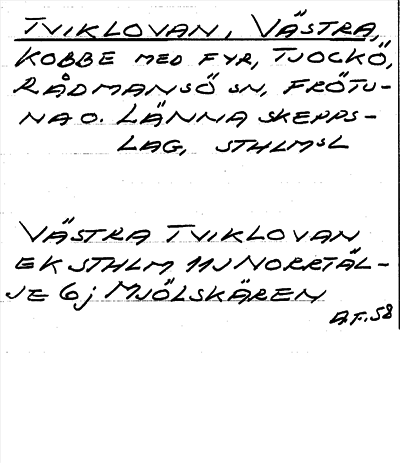 TVIKLOVAN, VÄSTRA,
KOBBE MED FYR, TJOCKÖ,
RÅDMANSÖ SN, FRÖTU-
NA O. LÄNNA SKEPPS-
LAG, STHLMSL
VÄSTRA TVIKLOVAN
EK STHLM 11J NORRTÄL-
JE 6j MJÖLSKÄREN
AF.58